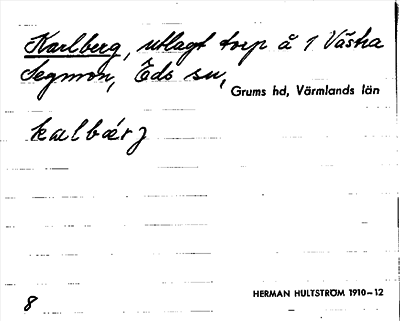 Karlberg, utlagt torp å 1 Västra
Segmon, Eds sn,
Grums hd, Värmlands län
kalbärj
8
HERMAN HULTSTRÖM 1910–12